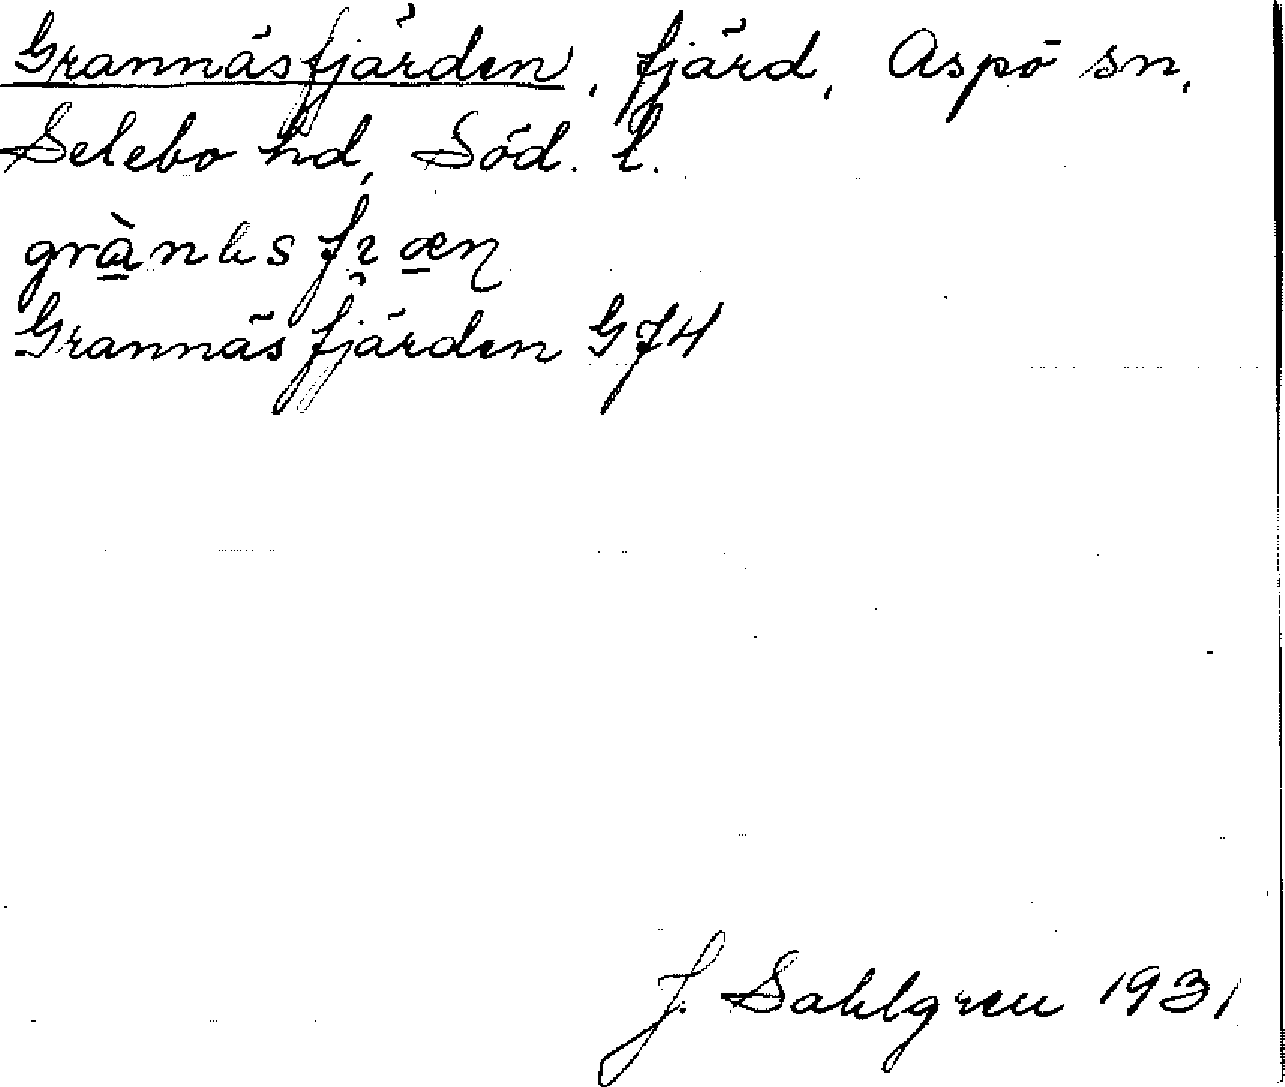 Grannäsfjärden, fjärd, Aspö sn,
Selebo hd, Söd. l.
Grannäsfjärden G74
J. Sahlgren 1931